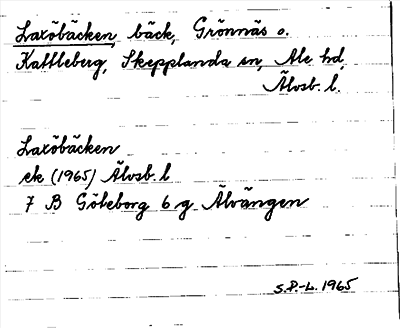 Laxöbäcken, bäck, Grönnäs o.
Kattleberg, Skepplanda sn, Ale hd,
Älvsb. l.
Laxöbäcken
ek (1965) Älvsb. l
7 B Göteborg 6 g Älvängen
S.P.-L. 1965